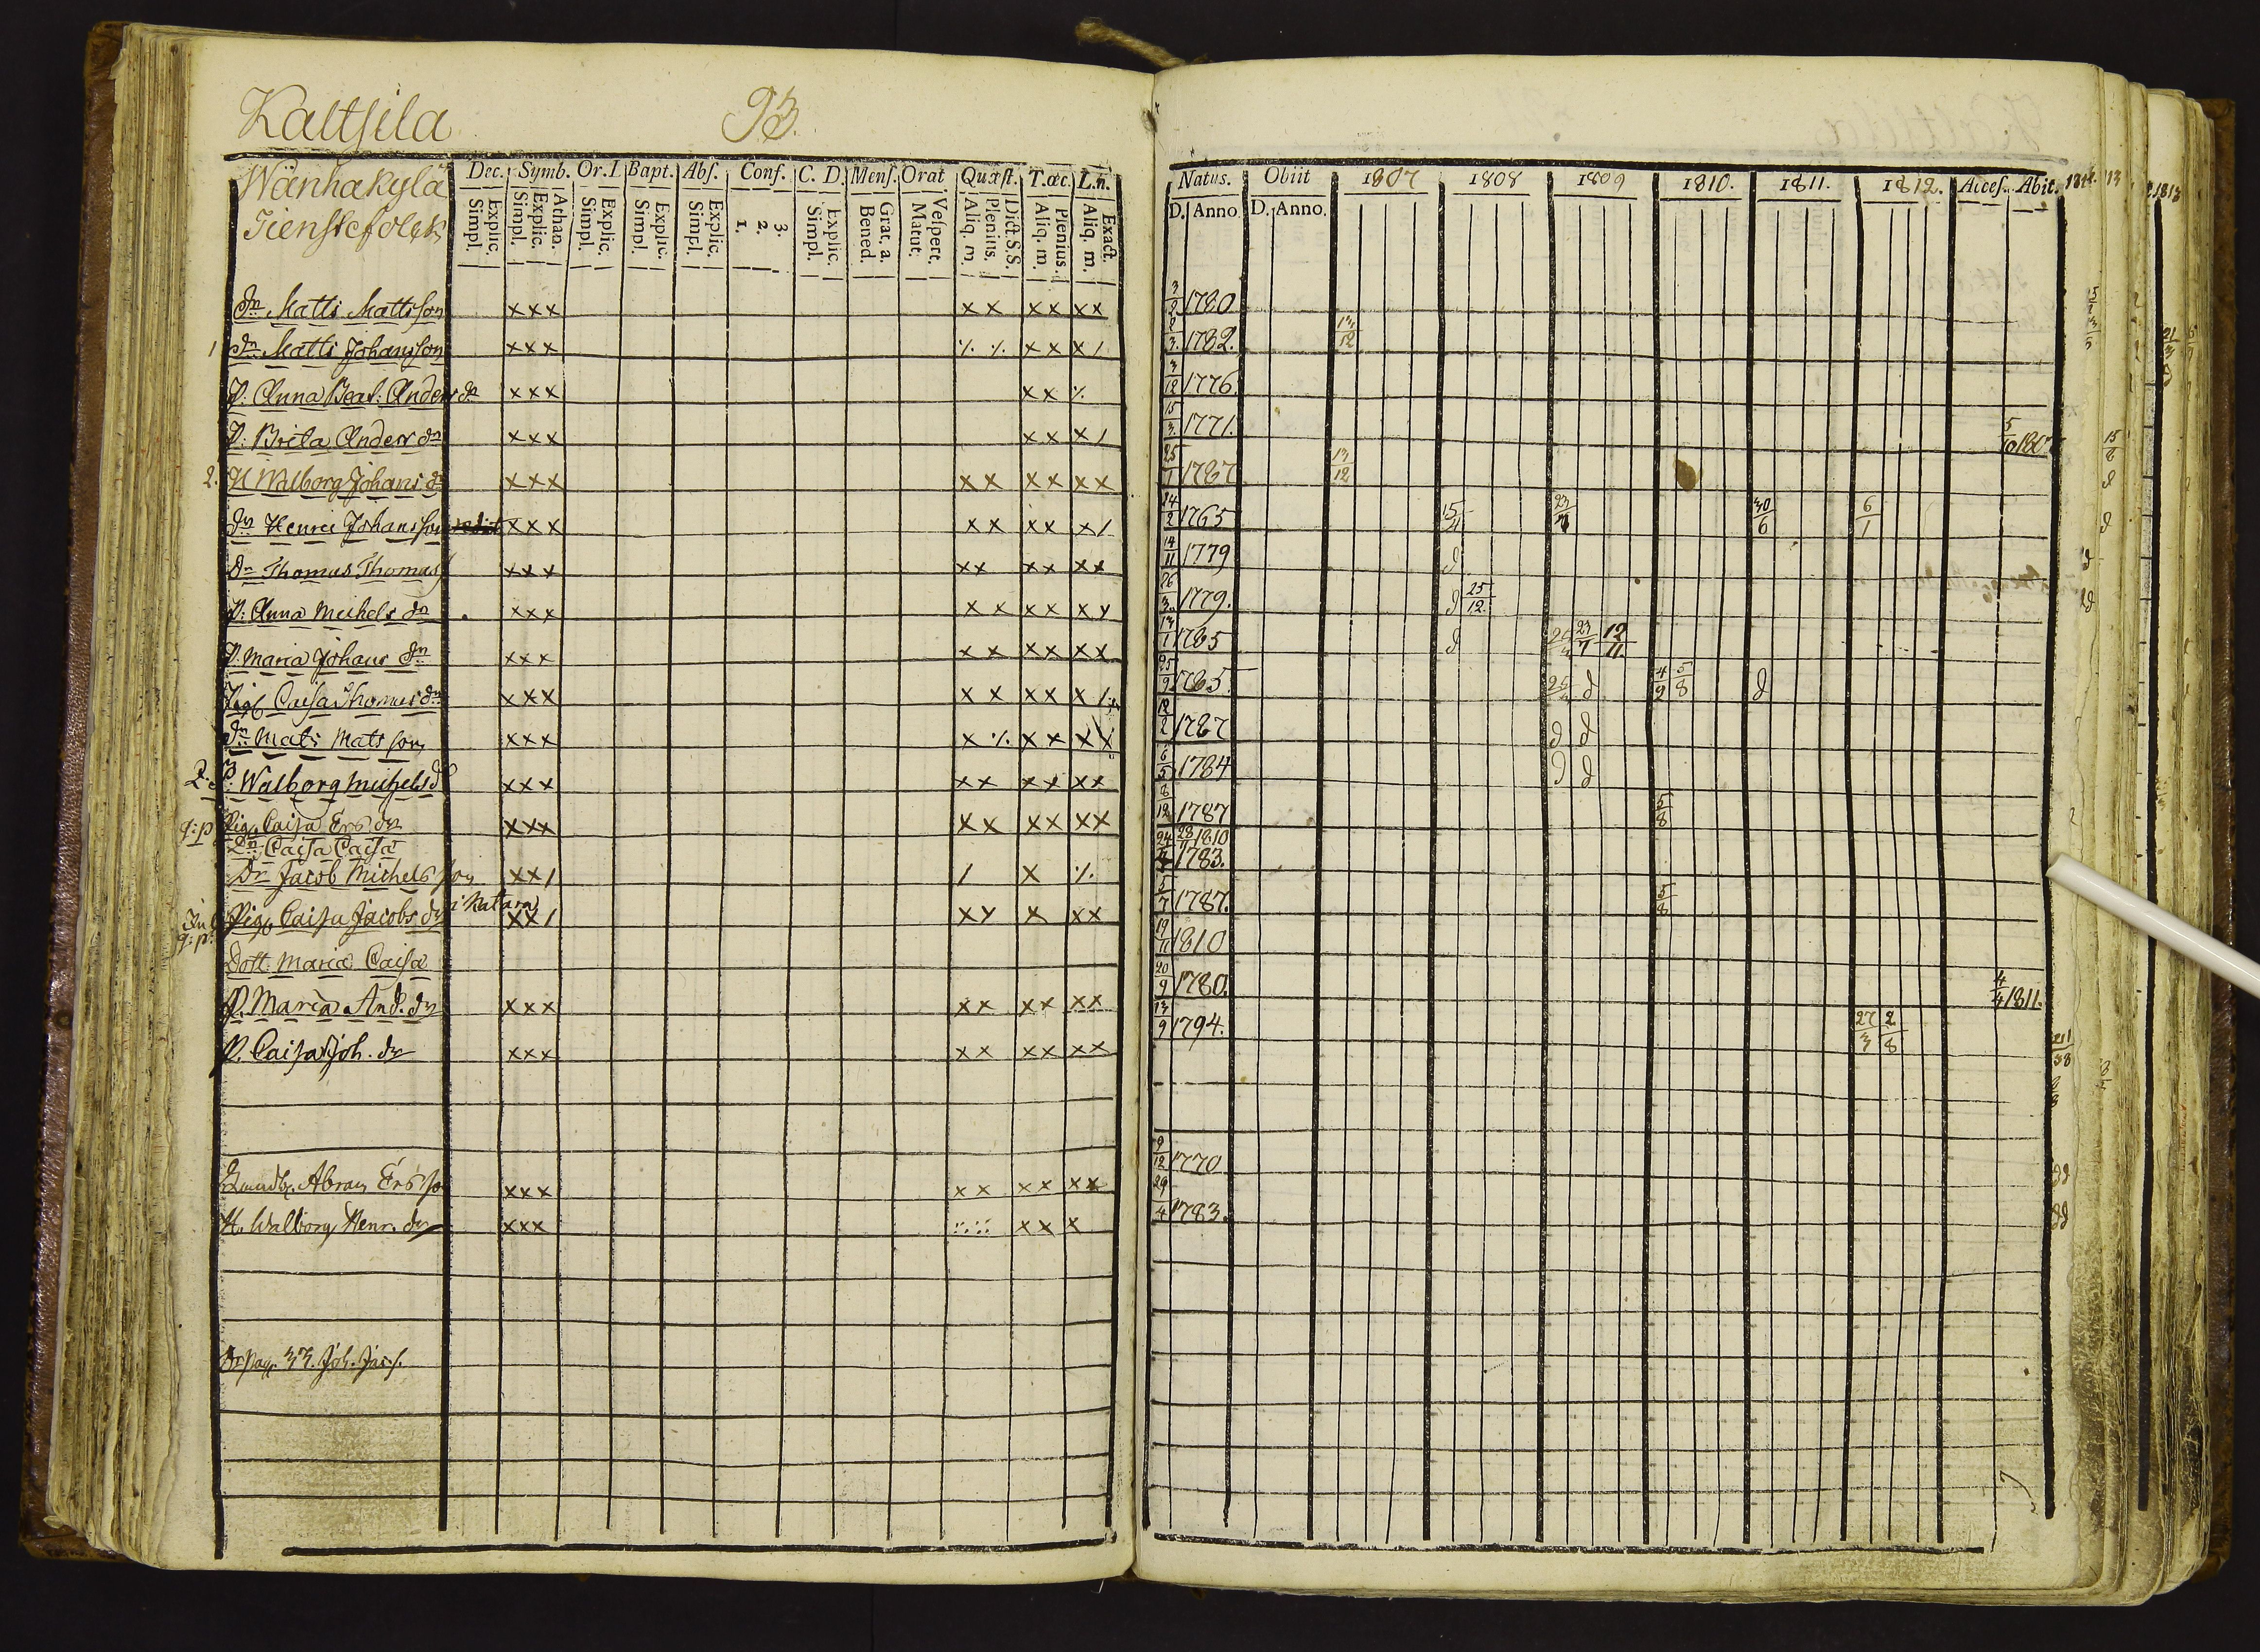 Kaltsila 93.
Wänhakylä
Tienstefolck
Dec. Symb. Or. I. Bapt. Abs. Conf. C. D. Mens. Orat. Quæst. T. œc. L. n.
Explic. Simpl. Athan. Explic. Simpl. Explic. Simpl. Explic. Simpl. Explic. Simpl. 3. 2. 1. Explic. Simpl. Grat. a. Bened. Vespert. Matut. Dict. S.S. Plenius. Aliq. m. Plenius. Aliq. m. Exact. Aliq. m.
Natus. Obiit 1807 1808 1809 1810. 1811. 1812. Acces. Abit.
D. Anno D. Anno. 1813
Dn Matti Mattsson xxx xx xx xx 3/2 1780
1 Dn Matti Johansson xxx ٪ ٪ xx x/ 8/3. 1782. 13/12
P. Anna Beat. Anders dr xxx xx ٪ 3/12 1776.
P: Brita Anders dr xxx xx x/ 15/3. 1771. 5/10 1807
2. H Walborg Johans dr xxx xx xx xx 25/1 1787 13/12
Dn Henric Johansson xxx xx xx x/ 24/2 1765 15/4 23/7 30/6 6/1
Dn Thomas Thomas xxx xx xx xx 14/11 1779 d
P: Anna Michels dr xxx xx xx xx 26/3. 1779. d 25/12.
P. Maria Johans dr xxx xx xx xx 13/1 1785 d 23/7 12/11
Pig Caisa Thomas dr xxx xx xx x/ 25/9 1785. d 4/9 5/8 d
Dn Mats Matsson xxx x ٪ xx xx 12/2 1787 d d
P. Walborg Michels d xxx xx xx xx 6/5 1784 d d
q: p Pig Caisa Ers dr xxx xx xx xx 8/12 1787 5/8
Dr Caisa Caisa 28/11 1810
Dr Jacob Michelsson xx/ / x ٪ 1783.
q: p: Pig Caisa Jacobs dr i Natara xx/ xx x xx 5/7 1787. 5/8
Dott Maria Caisa 19/11 1810
P. Maria And. dr xxx xx xx xx 20/9 1780. 4/4 1811.
P. Caisa Joh. dr xxx xx xx xx 13/9 1794. 27/3 2/8
Abram Ersso xxx xx xx xx 9/12 1770
H. Walborg Henr. dr xxx xx x 29/4 1783.
Dr pag. 33. Joh. Jacs.